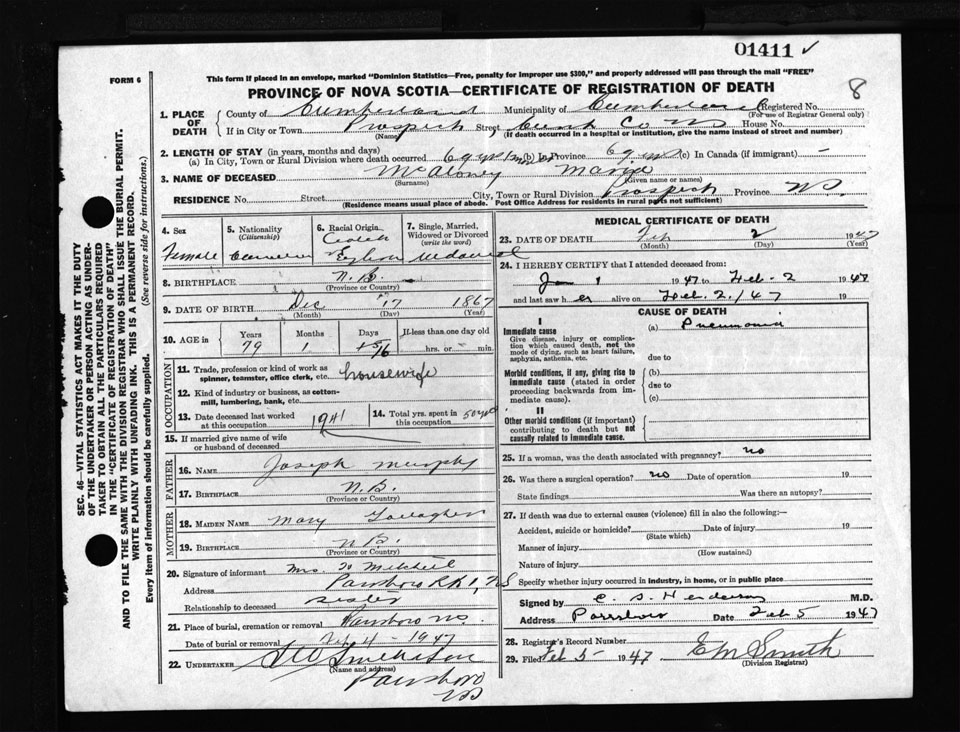 01411 ✓
8
FORM 6
This form if placed in an envelope, marked "Dominion Statistics—Free, penalty for improper use $300," and properly addressed will pass through the mail "FREE"
PROVINCE OF NOVA SCOTIA—CERTIFICATE OF REGISTRATION OF DEATH
SEC. 46—VITAL STATISTICS ACT MAKES IT THE DUTY
OF THE UNDERTAKER OR PERSON ACTING AS UNDER-
TAKER TO OBTAIN ALL THE PARTICULARS REQUIRED
IN THE "CERTIFICATE OF REGISTRATION OF DEATH"
AND TO FILE THE SAME WITH THE DIVISION REGISTRAR WHO SHALL ISSUE THE BURIAL PERMIT.
WRITE PLAINLY WITH UNFADING INK. THIS IS A PERMANENT RECORD.
Every item of information should be carefully supplied. (See reverse side for instructions.)
1. PLACE OF DEATH
County of Cumberland Municipality of Cumberland Registered No.
(For use of Registrar General only)
If in City or Town Prospect Street Cumb Co NS House No.
(Name) (If death occurred in a hospital or institution, give the name instead of street and number)
2. LENGTH OF STAY (in years, months and days)
(a) In City, Town or Rural Division where death occurred 69 yrs (b) In Province 69 yrs (c) In Canada (if immigrant) -
3. NAME OF DECEASED McAloney
(Surname) (Given name or names)
RESIDENCE No. Street City, Town or Rural Division Prospect Province NS.
(Residence means usual place of abode. Post Office Address for residents in rural parts not sufficient)
4. Sex
Female
5. Nationality
(Citizenship)
Canadian
6. Racial Origin
7. Single, Married,
Widowed or Divorced
(write the word)
Widowed
8. BIRTHPLACE N.B.
(Province or Country)
9. DATE OF BIRTH Dec 17 1867
(Month) (Day) (Year)
10. AGE in Years Months Days If less than one day old
79 1 16 hrs. or min.
OCCUPATION
11. Trade, profession or kind of work as
spinner, teamster, office clerk, etc. housewife
12. Kind of industry or business, as cotton-
mill, lumbering, bank, etc.
13. Date deceased last worked
at this occupation 1941
14. Total yrs. spent in
this occupation 50 yrs
15. If married give name of wife
or husband of deceased
FATHER
16. NAME Joseph Murphy
17. BIRTHPLACE N.B.
(Province or Country)
MOTHER
18. MAIDEN NAME Mary Gallagher
19. BIRTHPLACE N.B.
(Province or Country)
20. Signature of informant Mrs. W Mitchell
Address Parrsboro RR 1, NS
Relationship to deceased sister
21. Place of burial, cremation or removal Parrsboro NS.
Date of burial or removal Feb 4 - 1947
22. UNDERTAKER
(Name and address)
Parrsboro
NS
MEDICAL CERTIFICATE OF DEATH
23. DATE OF DEATH Feb 2 1947
(Month) (Day) (Year)
24. I HEREBY CERTIFY that I attended deceased from:
Jan 1 1947 to Feb. 2 1947
and last saw her alive on Feb. 2/47 19
CAUSE OF DEATH
I
Immediate cause (a) Pneumonia
Give disease, injury or complica-
tion which caused death, not the
mode of dying, such as heart failure,
asphyxia, asthenia, etc. due to
Morbid conditions, if any, giving rise to
immediate cause (stated in order
proceeding backwards from im-
mediate cause).
(b)
due to
(c)
II
Other morbid conditions (if important)
contributing to death but not
causally related to immediate cause.
25. If a woman, was the death associated with pregnancy? no
26. Was there a surgical operation? no Date of operation 19
State findings Was there an autopsy?
27. If death was due to external causes (violence) fill in also the following:—
Accident, suicide or homicide? Date of injury 19
(State which)
Manner of injury
(How sustained)
Nature of injury
Specify whether injury occurred in industry, in home, or in public place
Signed by C. S. Henderson M.D.
Address Parrsboro Date Feb 5 1947
28. Registrar's Record Number
29. Filed Feb 5 - 1947 EM Smith
(Division Registrar)